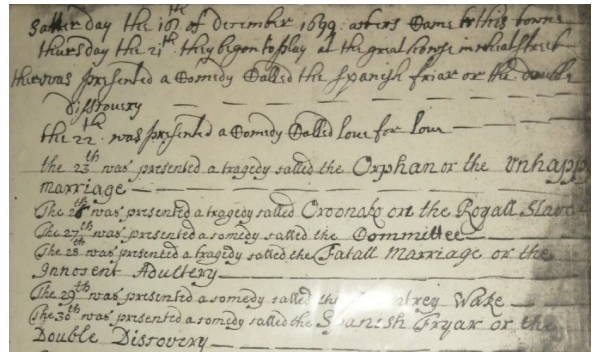 Satterday the 16th of December 1699 acters Came to this towne
thursday the 21th they begon to play at the great howse in wheat street
ther was presented a Comedy Called the Spanish friar or the double
disscovery
the 22th was presented a Comedy Called love for love
the 23th was presented a tragedy called the Orphan or the Unhappy
marriage
The 26th was presented a tragedy called Oroonoko or the Royall Slave
The 27th was presented a comedy called the Committee
The 28th was presented a tragedy called the Fatall Marriage or the
Innosent Adultery
The 29th was presented a comedy called the Wake
The 30th was presented a comedy called the Spanish Fryar or the
Double Discovery